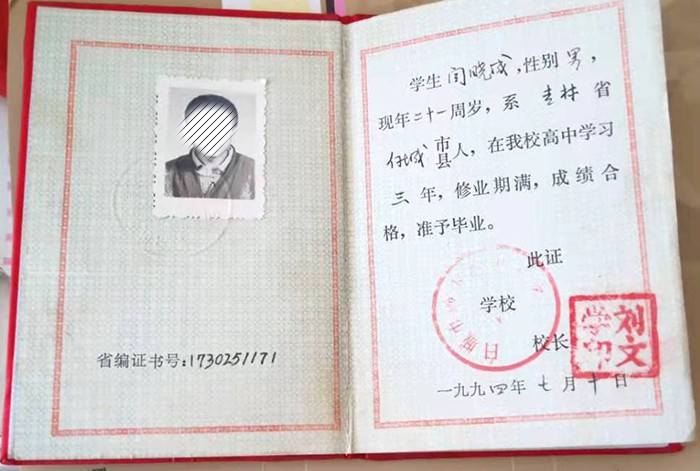 省编证书号:1730251171
学生闫晓成,性别男,
现年二十一周岁,系吉林省
市
县人,在我校高中学习
三年,修业期满,成绩合
格,准予毕业。
此证
学校
校长
刘文
学印
一九九四年七月十日